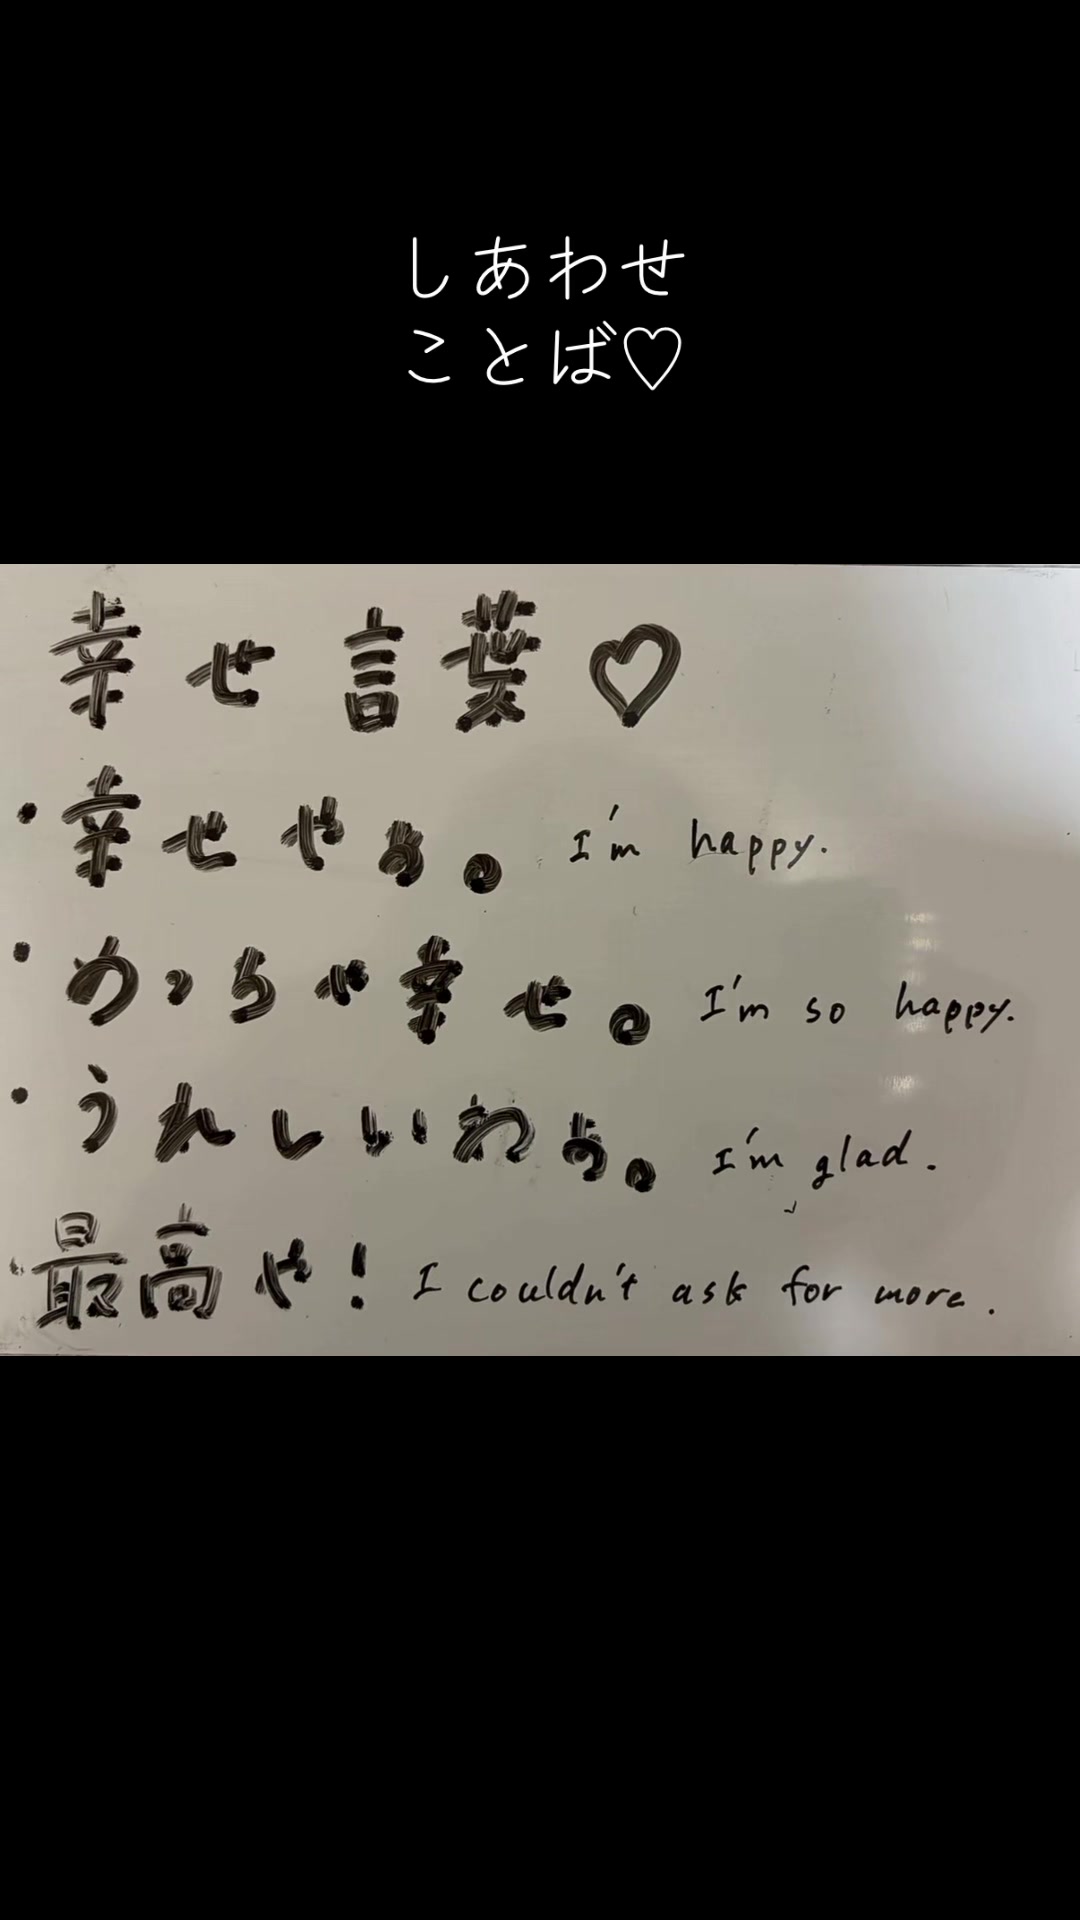 しあわせ
ことば♡
幸せ言葉♡
・幸せやぁ。 I'm happy.
・めっちゃ幸せ。 I'm so happy.
・うれしいわぁ。 I'm glad.
・最高や! I couldn't ask for more.